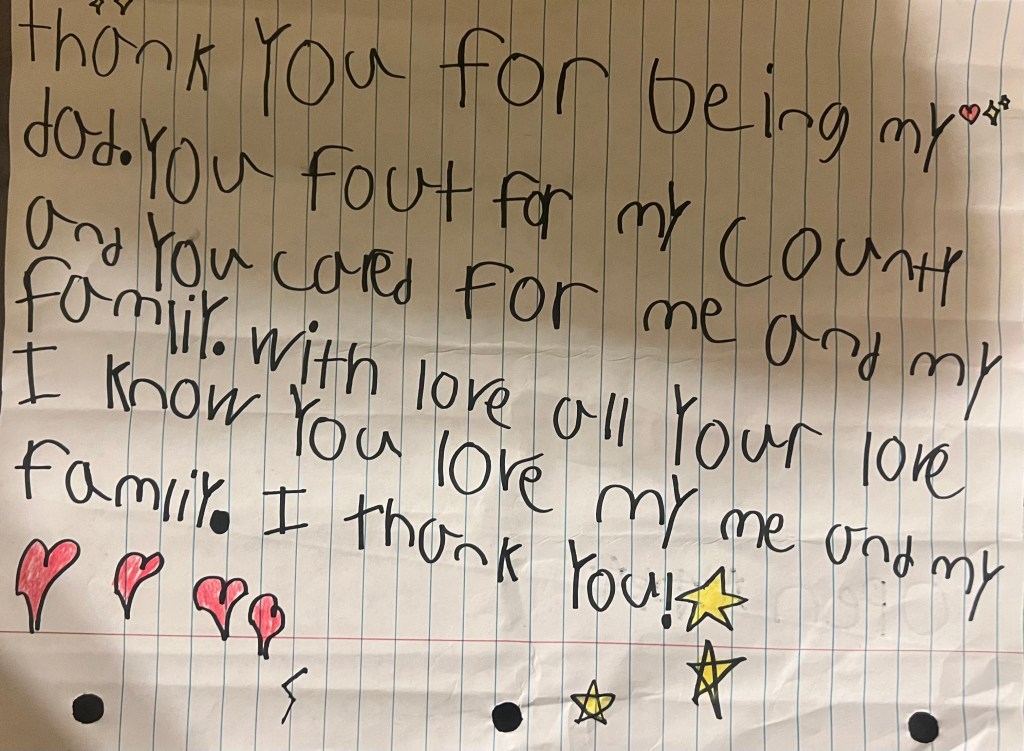 thank You for being my
dad. You fout for my County
and You cared for me and my
famliy. with love all Your love
I know You love my me and my
Famliy. I thank You!